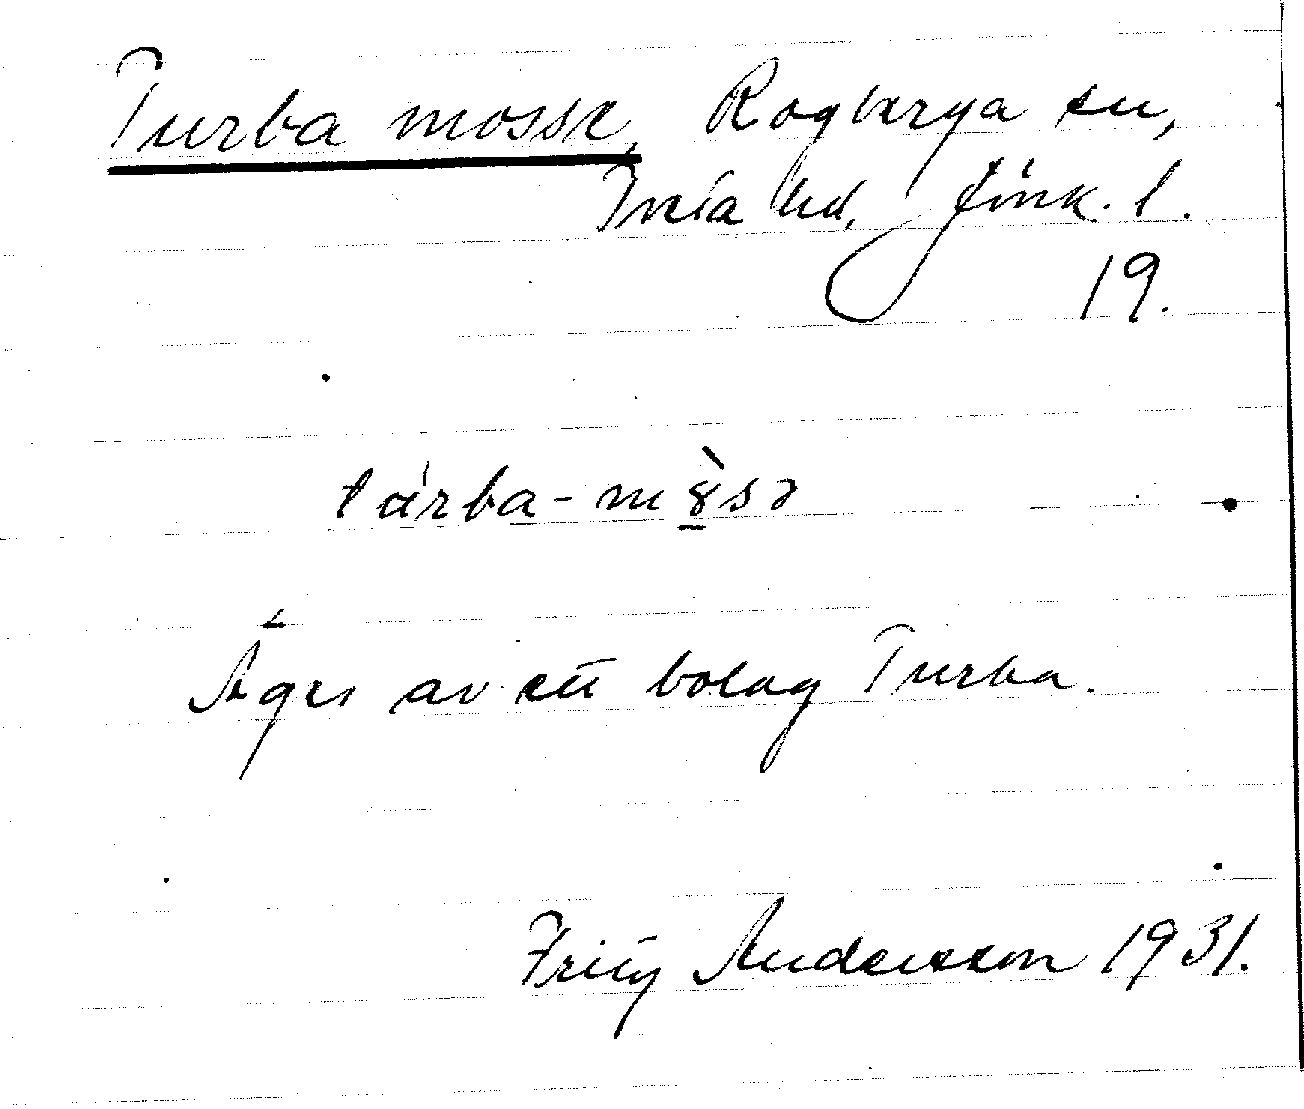 Turba mosse, Rogberga sn,
Tveta hd, Jönk. l.
19.
tárba-mòsə
Äges av ett bolag Turba.
Fritz Andersson 1931.